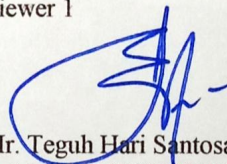 iewer 1
Ir. Teguh Hari Santosa